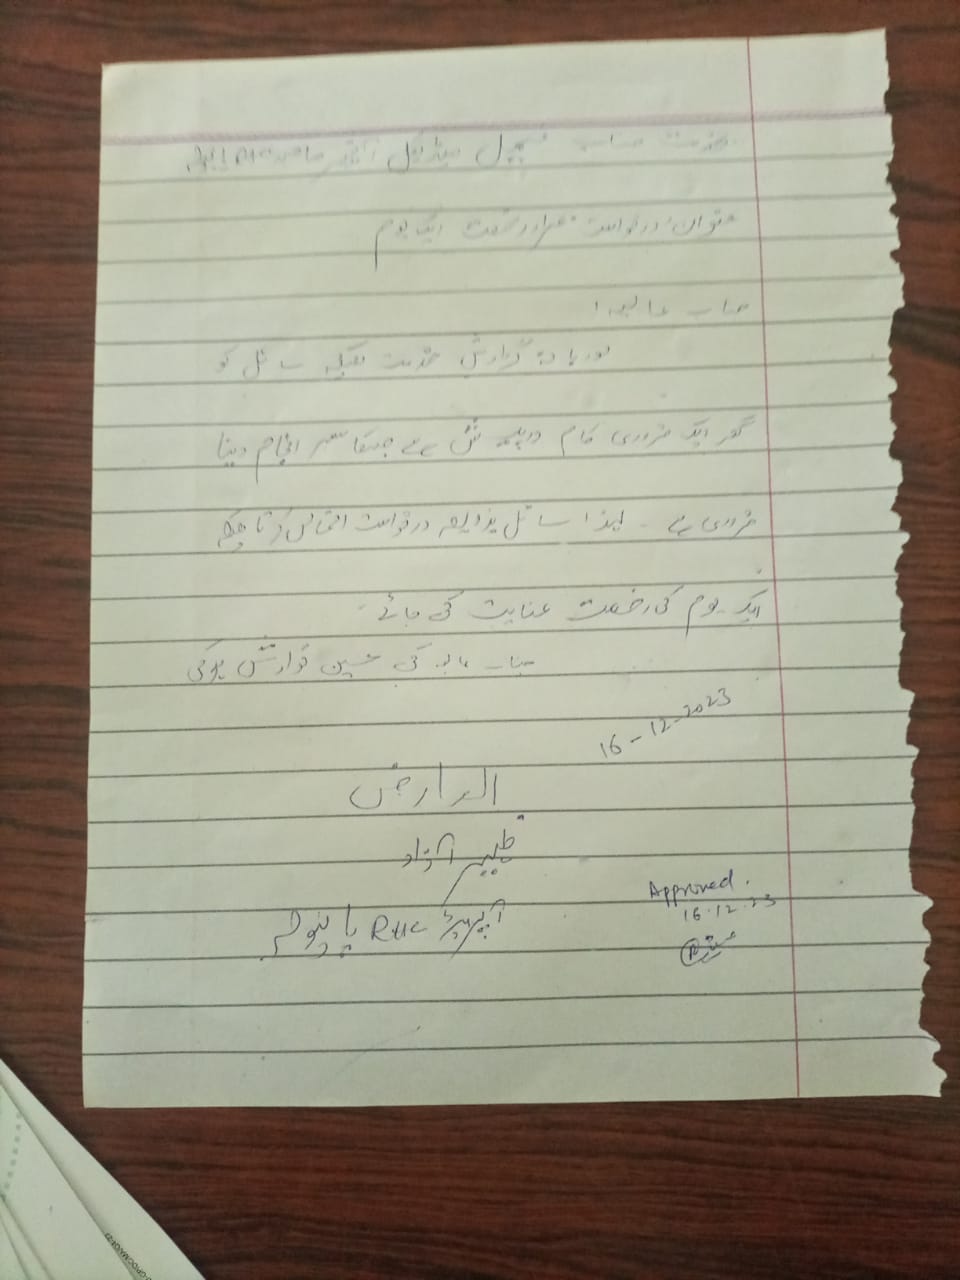 بخدمت جناب میڈیکل آفیسر صاحب RHC
عنوان: درخواست بمراد رخصت ایک یوم
جناب عالیہ!
گزارش خدمت ہیکہ سائل کو
گھر ایک ضروری کام درپیش ہے جسکا سر انجام دینا
ضروری ہے۔ لہذا سائل بذریعہ درخواست التماس کرتا ہیکہ
ایک یوم کی رخصت عنایت کی جائے۔
جناب عالیہ کی عین نوازش ہوگی
16-12-2023
العارض
ظہیر آزاد
آپریٹر RHC
Approved.
16.12.23